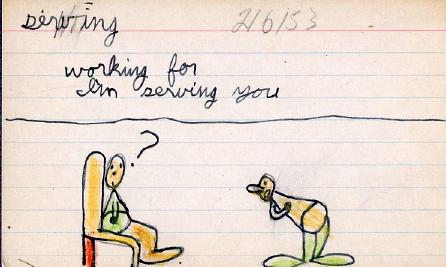 serving 2/6/53
working for
I'm serving you
?